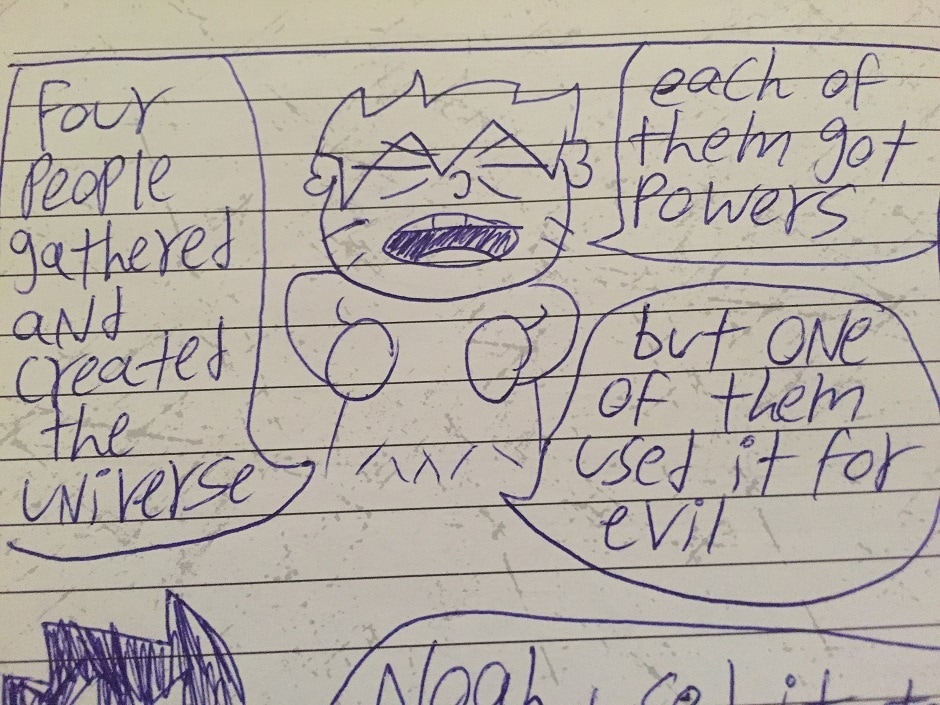 Four
People
gathered
and
created
the
universe
each of
them got
Powers
but one
of them
used it for
evil
Noah used it